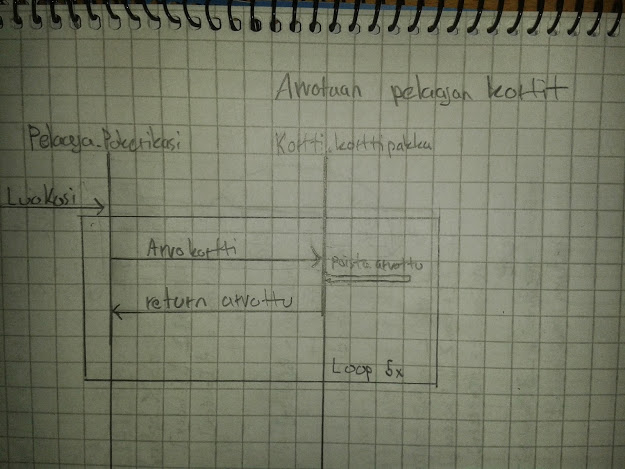 Arvotaan pelaajan kortit
Pelaaja.Pokerikasi Kortti.korttipakka
LuoKasi
Arvo kortti
poista arvottu
return arvottu
Loop 5x